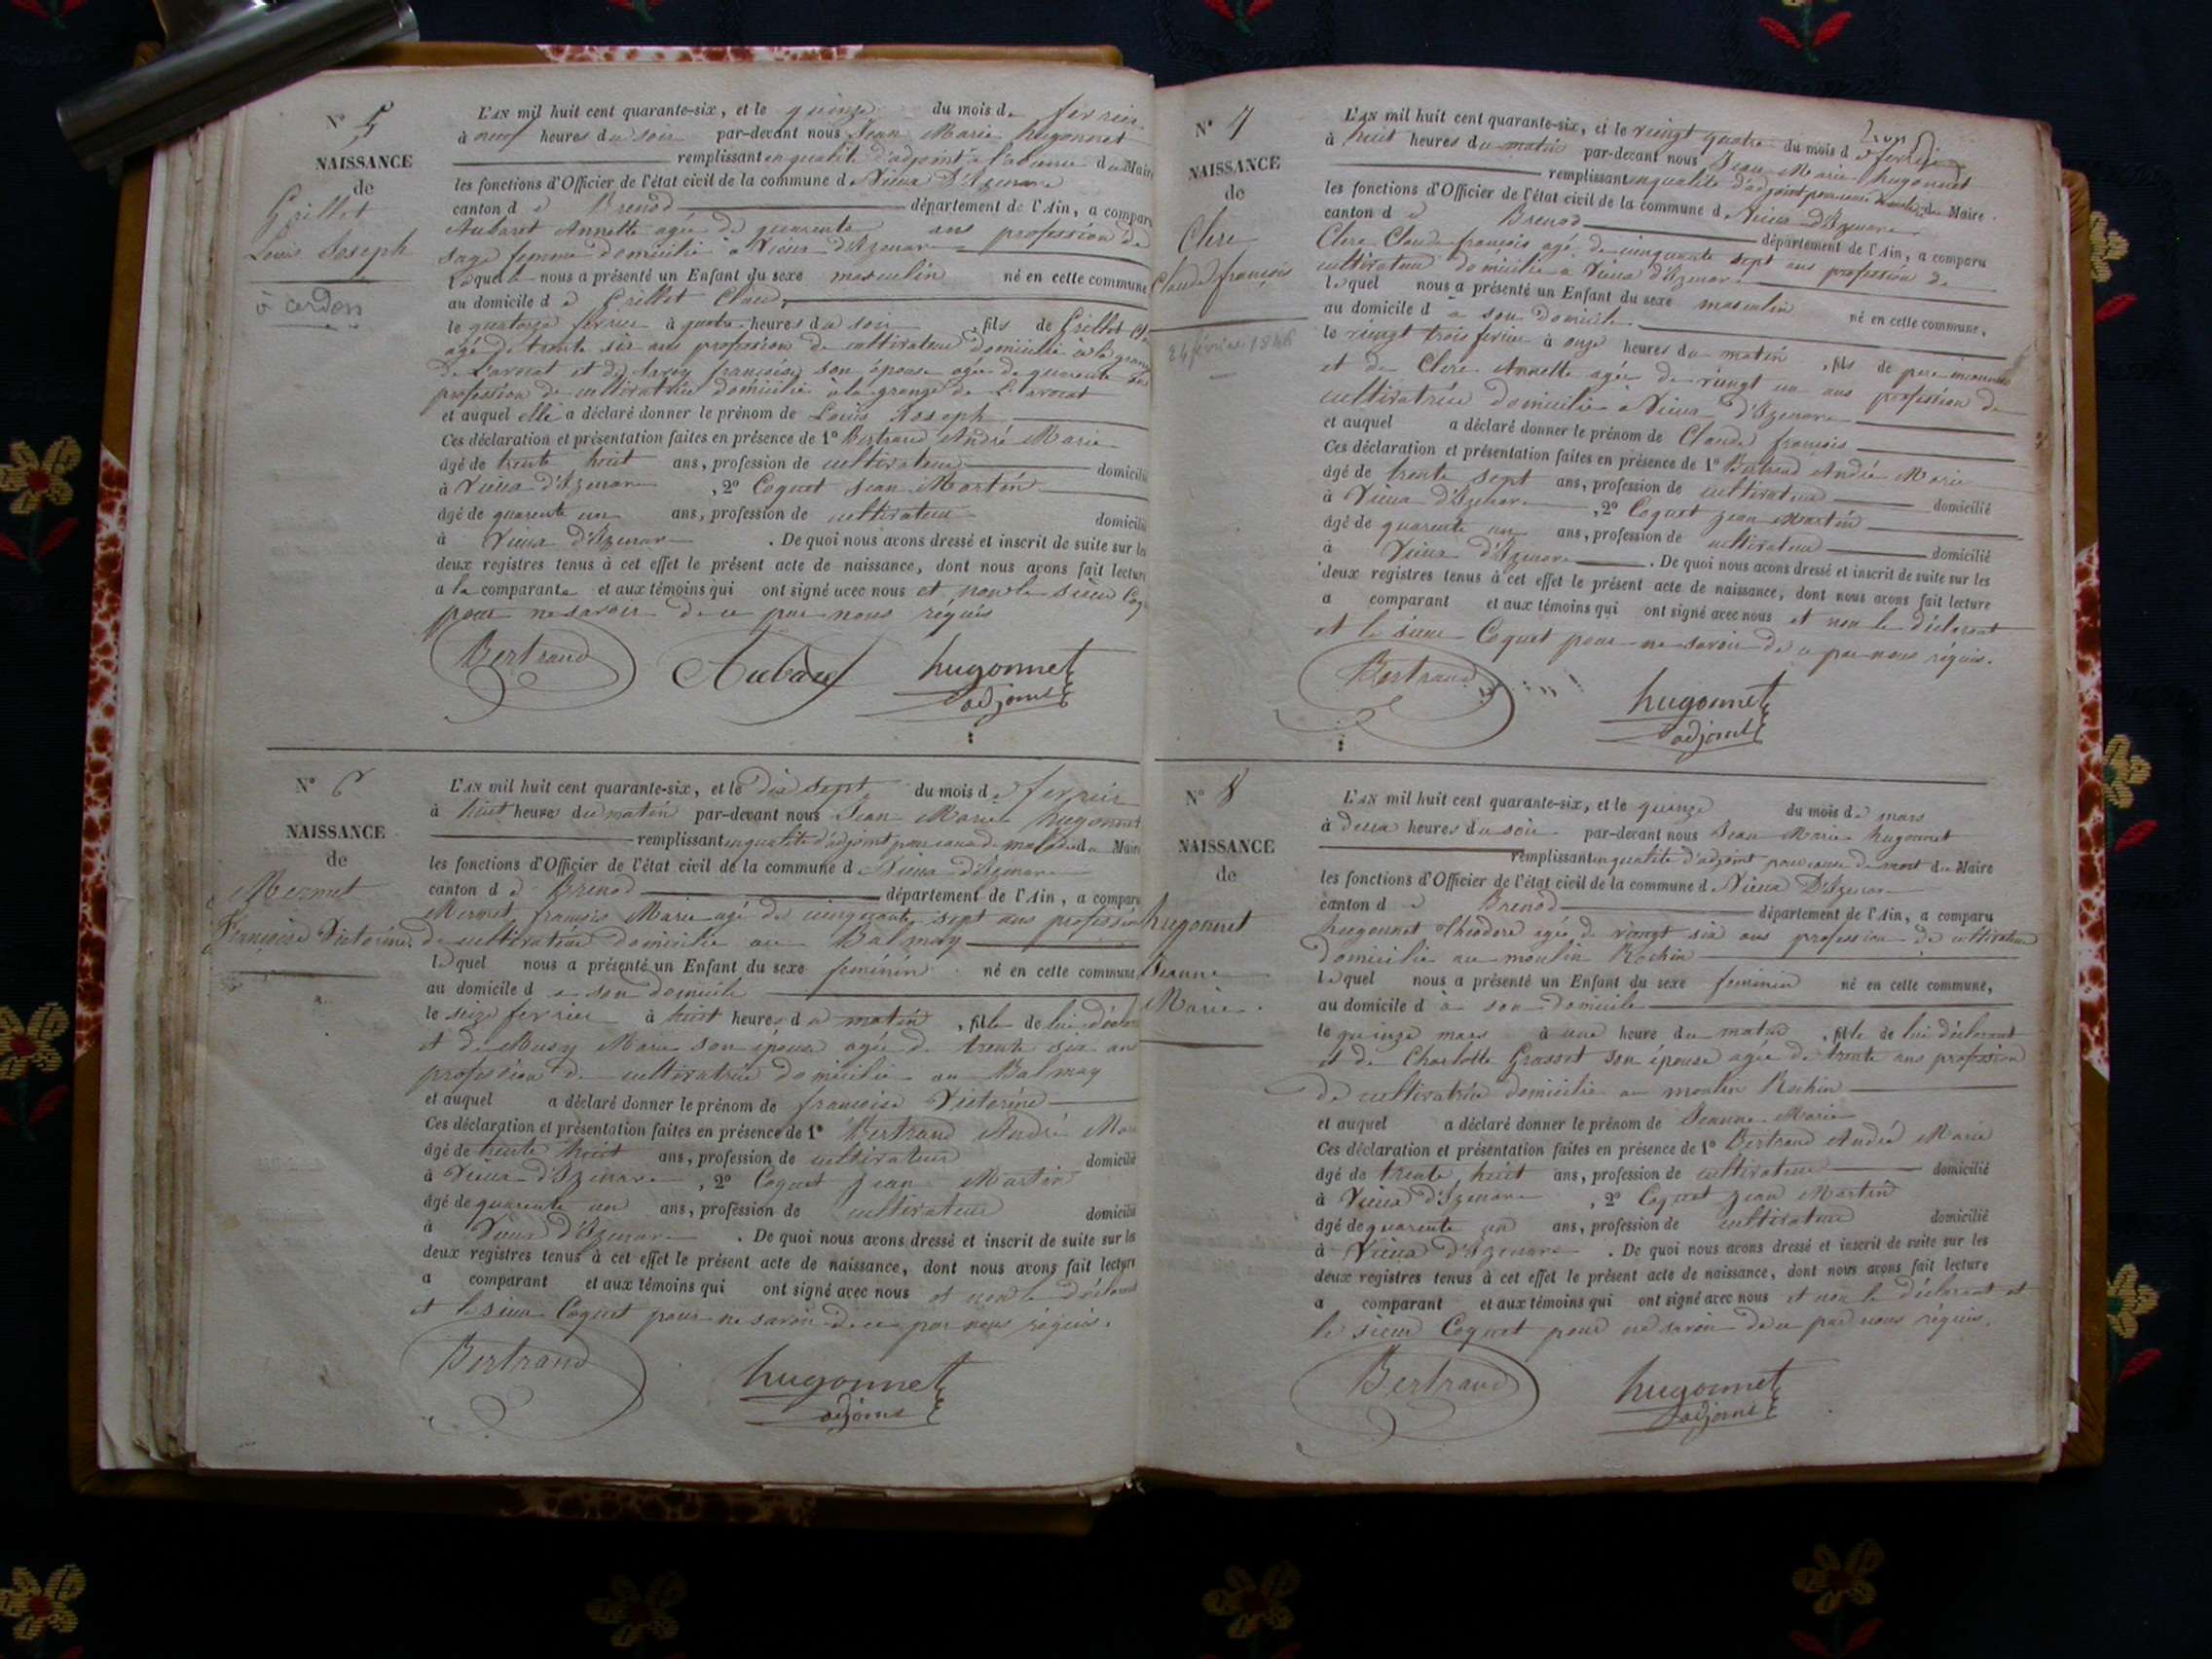 N° 5
NAISSANCE
de
Grillet
Louis Joseph
à cerdon
L'AN mil huit cent quarante-six, et le quinze du mois de fevrier
à neuf heures du soir par-devant nous Jean Marie hugonnet
remplissant en qualité d'adjoint à l'absence du Maire
les fonctions d'Officier de l'état civil de la commune de Vieux D'Izenave
canton de Brenod département de l'Ain, a comparu
Aubaret Annette agée de quarente ans profession de
sage femme domicilié à Vieux d'Izenave
Laquelle nous a présenté un Enfant du sexe masculin né en cette commune
au domicile de Grillet Claude
le quatorze fevrier à quatre heures du soir, fils de Grillet Cl
agé de trente six ans profession de cultivateur domicilié à la grange
de L'avocat et de françoise son épouse agée de quarente ans
profession de cultivatrice domicilié à la grange de L'avocat
et auquel elle a déclaré donner le prénom de Louis Joseph
Ces déclaration et présentation faites en présence de 1° Bertrand André Marie
âgé de trente huit ans, profession de cultivateur domicilié
à Vieux d'Izenave, 2° Coquet Jean Martin
âgé de quarente un ans, profession de cultivateur domicilié
à Vieux d'Izenave. De quoi nous avons dressé et inscrit de suite sur les
deux registres tenus à cet effet le présent acte de naissance, dont nous avons fait lecture
a la comparante et aux témoins qui ont signé avec nous et non le sieur Coq
pour ne savoir de ce par nous réquis
Bertrand Aubaret hugonnet
adjoint
N° 6
NAISSANCE
de
Mermet
Françoise Victorine
L'AN mil huit cent quarante-six, et le dix sept du mois de fevrier
à huit heure du matin par-devant nous Jean Marie hugonnet
remplissant en qualité d'adjoint pour cause de maladie du Maire
les fonctions d'Officier de l'état civil de la commune de Vieux d'Izenave
canton de Brenod département de l'Ain, a comparu
Mermet françois Marie agé de cinquante sept ans profession
de cultivateur domicilié au Balmay
lequel nous a présenté un Enfant du sexe feminin né en cette commune
au domicile d à son domicile
le seize fevrier à huit heures du matin, fille de lui déclar
et de Busy Marie son épouse agée de trente six ans
profession de cultivatrice domicilié au Balmay
et auquel a déclaré donner le prénom de francoise Victorine
Ces déclaration et présentation faites en présence de 1° Bertrand André Mar
âgé de trente huit ans, profession de cultivateur domicilié
à Vieux d'Izenave, 2° Coquet Jean Martin
âgé de quarente un ans, profession de cultivateur domicilié
à Vieux d'Izenave. De quoi nous avons dressé et inscrit de suite sur les
deux registres tenus à cet effet le présent acte de naissance, dont nous avons fait lecture
a comparant et aux témoins qui ont signé avec nous et non le déclarant
et le sieur Coquet pour ne savoir de ce par nous réquis.
Bertrand hugonnet
adjoint
N° 7
NAISSANCE
de
Clerc
Claude françois
24 février 1846
L'AN mil huit cent quarante-six, et le vingt quatre du mois de fevrier
à huit heures du matin par-devant nous Jean Marie hugonnet
remplissant en qualité d'adjoint pour cause du Maire
les fonctions d'Officier de l'état civil de la commune de Vieux D'Izenave
canton de Brenod département de l'Ain, a comparu
Clerc Claude françois agé de cinquante sept ans profession de
cultivateur domicilié à Vieux d'Izenave
lequel nous a présenté un Enfant du sexe masculin né en cette commune,
au domicile d à son domicile
le vingt trois fevrier à onze heures du matin, fils de pere inconnu
et de Clerc Annette agée de vingt un ans profession de
cultivatrice domicilié à Vieux d'Izenave
et auquel a déclaré donner le prénom de Claude françois
Ces déclaration et présentation faites en présence de 1° Bertrand André Marie
âgé de trente sept ans, profession de cultivateur domicilié
à Vieux d'Izenave, 2° Coquet Jean Martin
âgé de quarente un ans, profession de cultivateur domicilié
à Vieux d'Izenave. De quoi nous avons dressé et inscrit de suite sur les
deux registres tenus à cet effet le présent acte de naissance, dont nous avons fait lecture
a comparant et aux témoins qui ont signé avec nous et non le déclarant
et le sieur Coquet pour ne savoir de ce par nous réquis.
Bertrand hugonnet
adjoint
N° 8
NAISSANCE
de
hugonnet
Jeanne
Marie.
L'AN mil huit cent quarante-six, et le quinze du mois de mars
à deux heures du soir par-devant nous Jean Marie hugonnet
remplissant en qualité d'adjoint pour cause de mort du Maire
les fonctions d'Officier de l'état civil de la commune de Vieux D'Izenave
canton de Brenod département de l'Ain, a comparu
hugonnet Théodore agé de vingt six ans profession de cultivateur
domicilié au moulin Rochin
lequel nous a présenté un Enfant du sexe feminin né en cette commune,
au domicile d à son domicile
le quinze mars à une heure du matin, fille de lui déclarant
et de Charlotte Grassot son épouse agée de trente ans profession
de cultivatrice domicilié au moulin Rochin
et auquel a déclaré donner le prénom de Jeanne Marie
Ces déclaration et présentation faites en présence de 1° Bertrand André Marie
âgé de trente huit ans, profession de cultivateur domicilié
à Vieux d'Izenave, 2° Coquet Jean Martin
âgé de quarente un ans, profession de cultivateur domicilié
à Vieux d'Izenave. De quoi nous avons dressé et inscrit de suite sur les
deux registres tenus à cet effet le présent acte de naissance, dont nous avons fait lecture
a comparant et aux témoins qui ont signé avec nous et non le déclarant et
le sieur Coquet pour ne savoir de ce par nous réquis.
Bertrand hugonnet
adjoint